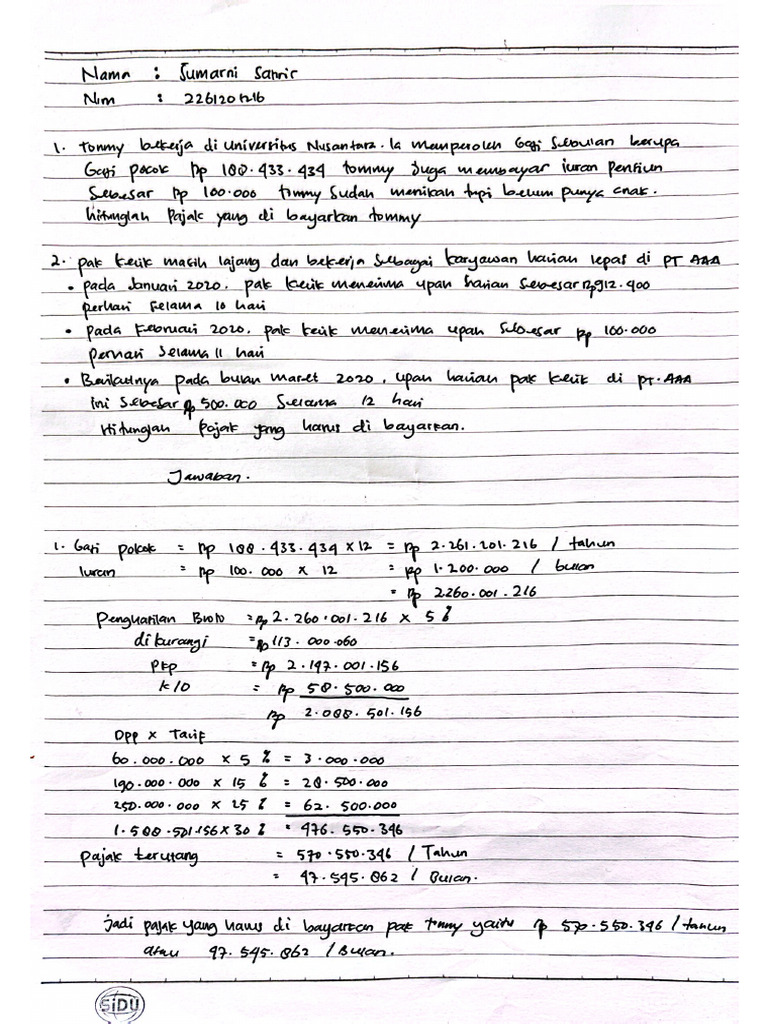 Nama : Sumarni Sahrir
Nim : 2261201216
1. Tommy bekerja di Universitas Nusantara. Ia memperoleh Gaji Sebulan berupa
Gaji pocok Rp 188.433.434 tommy Juga membayar iuran Pensiun
Sebesar Rp 100.000 timmy Sudah menikah tapi belum punya anak.
hitunglah Pajak yang di bayarkan tommy
2. pak kecik masih lajang dan bekerja Sebagai karyawan harian lepas di PT AAA
• pada Januari 2020, pak kecik menerima upah harian Sebesar Rp912.400
perhari selama 10 hari
• pada Februari 2020, pak kecik menerima upah Sebesar Rp 100.000
perhari selama 11 hari
• Berikutnya pada bulan maret 2020, upah harian pak kecik di PT.AAA
ini sebesar Rp 500.000 Selama 12 hari
Hitunglah Pajak yang harus di bayarkan.
Jawaban.
1. Gaji pokok = Rp 188.433.434 x 12 = Rp 2.261.201.216 / tahun
Iuran = Rp 100.000 x 12 = Rp 1.200.000 / bulan
= Rp 2260.001.216
Penghasilan Bruto = Rp 2.260.001.216 x 5 %
dikurangi = Rp 113.000.060
PKP = Rp 2.147.001.156
K/0 = Rp 58.500.000
Rp 2.088.501.156
Dpp x Tarif
60.000.000 x 5 % = 3.000.000
190.000.000 x 15 % = 28.500.000
250.000.000 x 25 % = 62.500.000
1.588.501.156 x 30 % = 476.550.346
pajak terutang = 570.550.346 / Tahun
= 47.545.862 / Bulan.
Jadi pajak yang harus di bayarkan pak tommy yaitu Rp 570.550.346 / tahun
atau 47.545.862 / Bulan.
SiDU